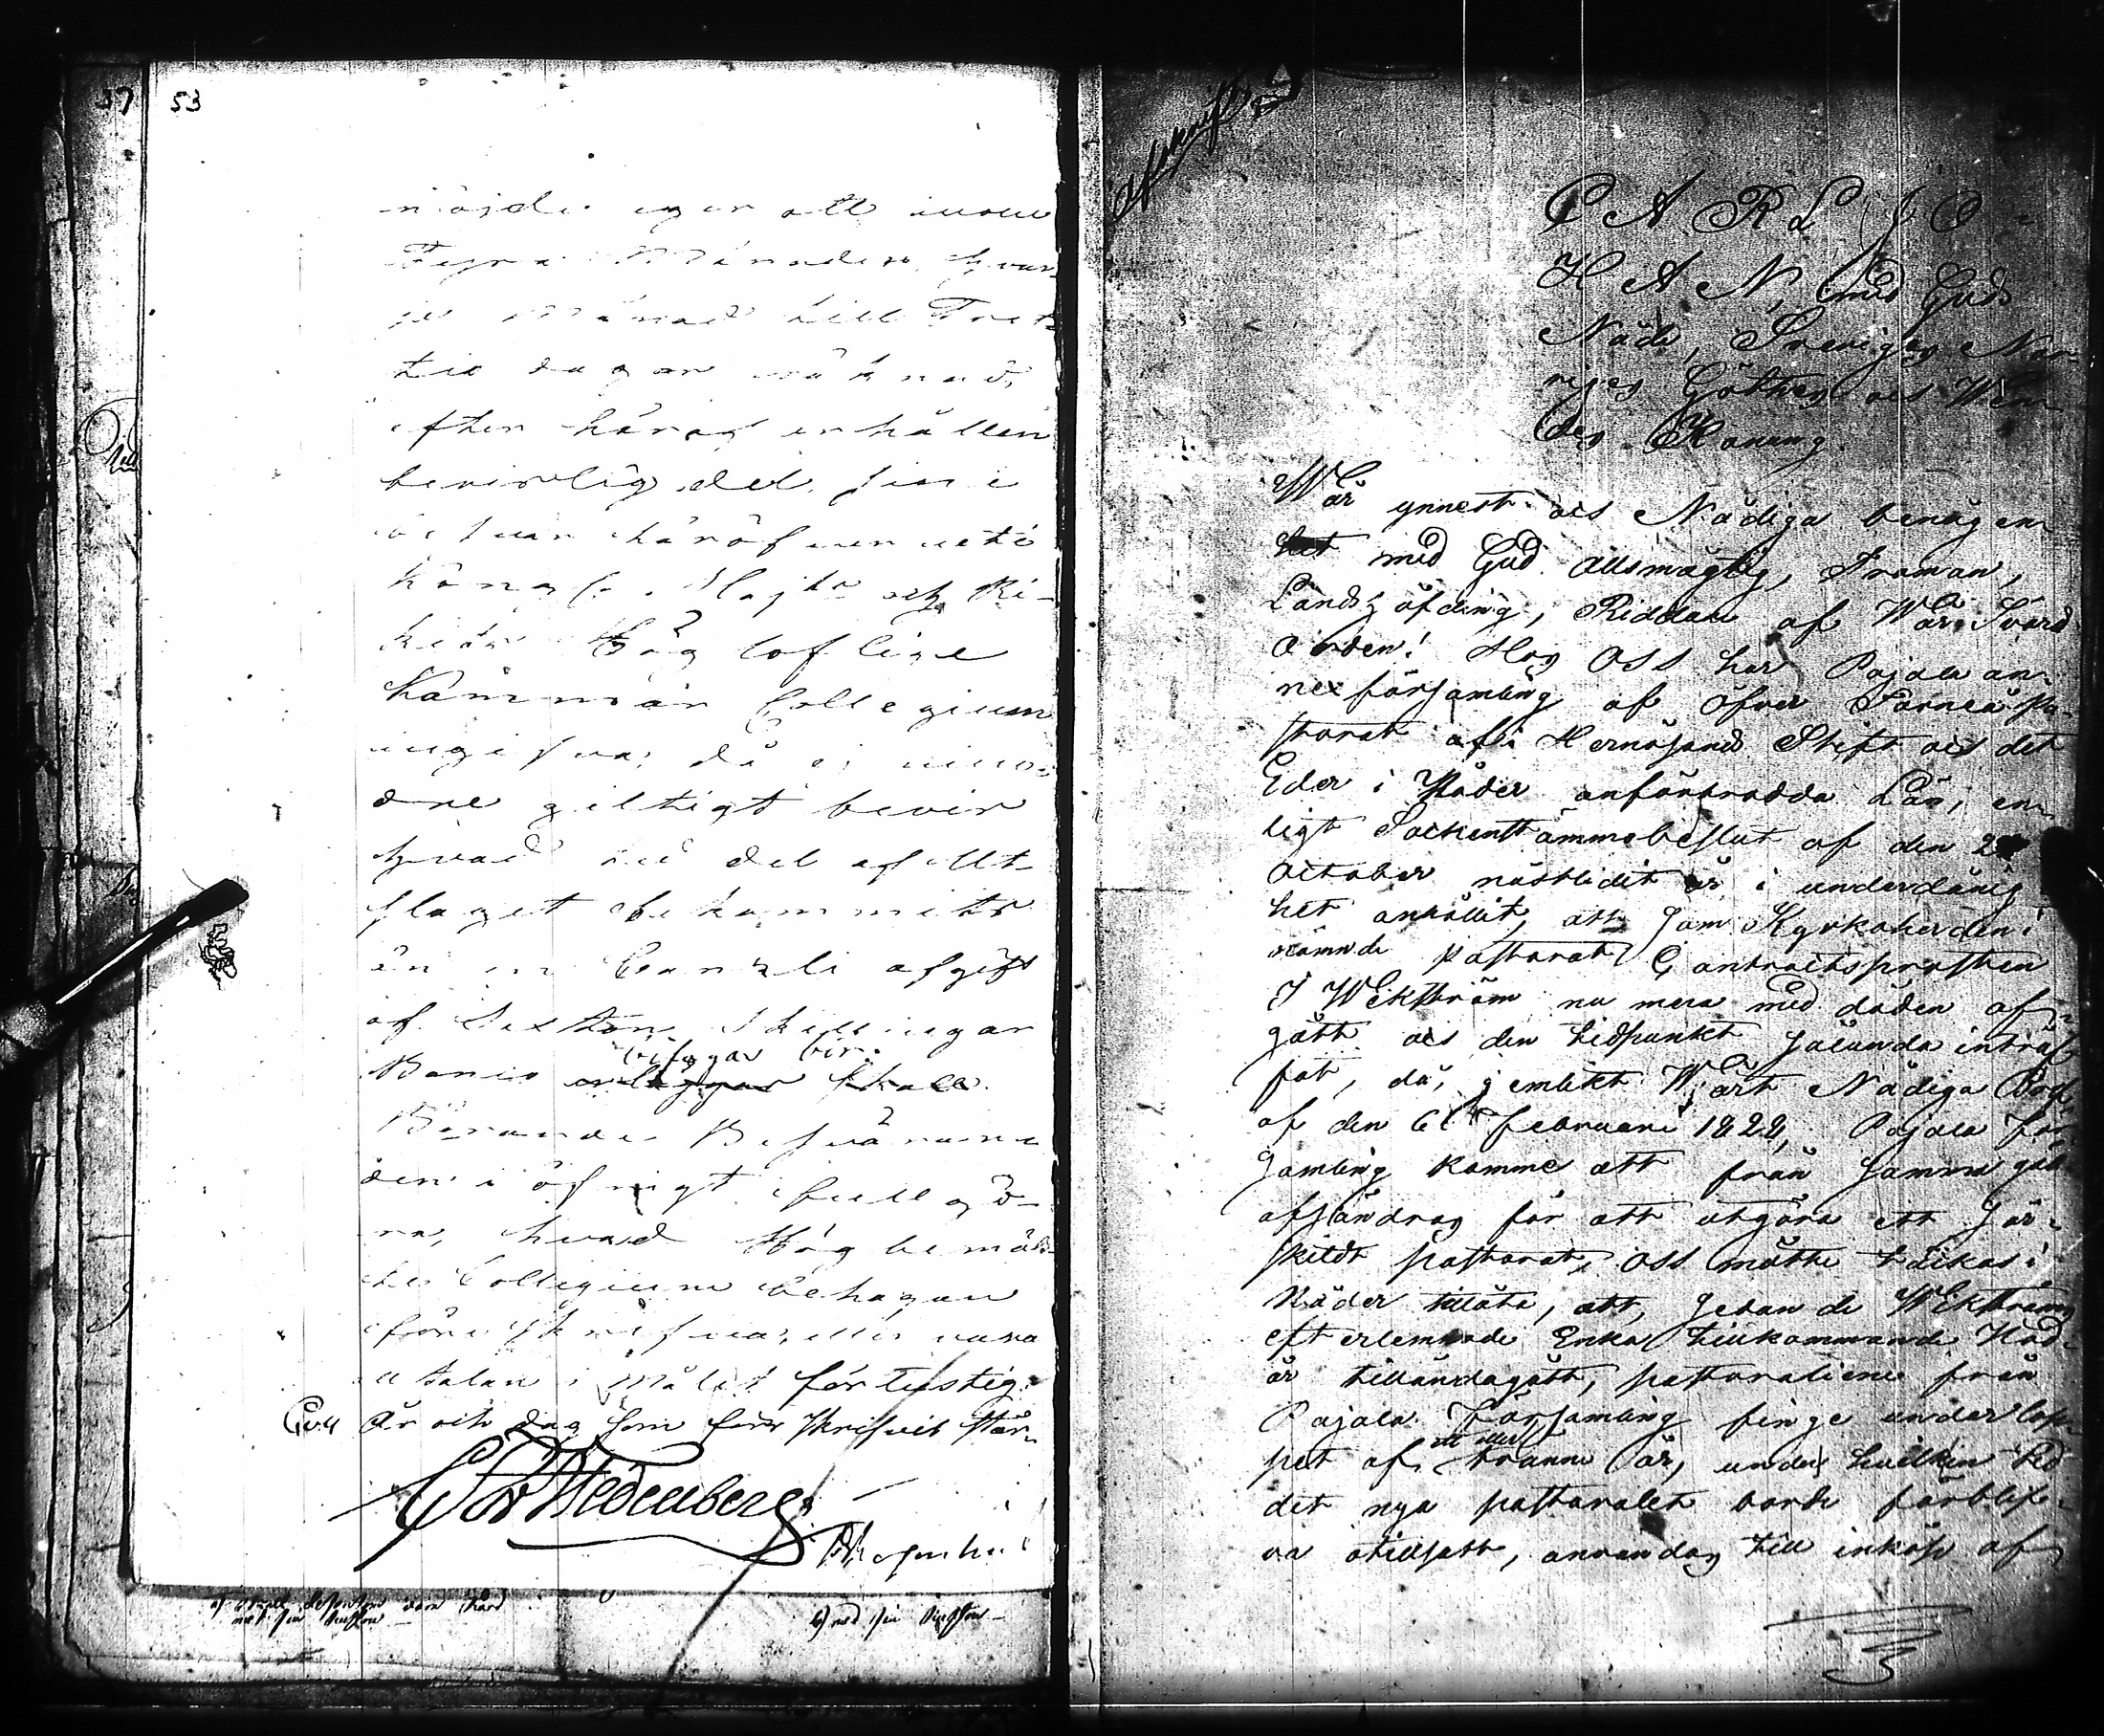 37 53
nöjde eger att inom
Fyra Månader, hvar
je Månad till Tret
tio dagar räknad,
efter häraf erhållen
bevislig del, sina
besvär häröfver uti
Kongl. Majts och Ri-
kets Högloflige
Kammar Collegium
ingifva, då ej min-
dre giltigt bevis
hvad tid del af Ut-
slaget bekommits
än en Cancli afgift
af Sexton Skillingar
Banco bifogas bör.
Börande Besvärs
den i öfrigt fullgö-
ra, hvad Högbemäl-
te Collegium behagar
föreskrifva, eller vara
talan i Målet förlustig.
År och dag som förr skrifvit står
Afskrift
CARL JO-
HAN, med Guds
Nåde, Sveriges Nor-
riges Göthes och Wen-
des Konung.
Wår ynnest och Nådiga benägen-
het med Gud Allsmägtig, Troman,
Landshöfding, Riddare af Wår Svärds
Orden! Hos Oss har Pajala an-
nex församling af Öfver Torneå Pa-
storat af Hernösands Stift och det
Eder i Nåder anförtrodda Län, en-
ligt Sockenstämmobeslut af den 2
October nästledit år i underdånig
het anhållit, att som Kyrkoherden i
nämnde pastorat Contractsprosten
Wikström nu mera med döden af-
gått och den tidpunkt sålunda inträf-
fat, då, jemlikt Wårt Nådiga Bref
af den 6 Februarii 1828, Pajala För-
samling komme att från samma gäll
afsöndras för att utgöra ett sär-
skildt pastorat, Oss måtte täckas i
Nåder tillåta, att, sedan de Wikströms
efterlemnade Enka tillkommande Nåd-
år tilländagått, pastoralierne från
Pajala Församling finge under lop-
pet af ett eller tvänne år, under hvilken tid
det nya pastoratet borde förblif-
va otillsatt, användas till inköp af